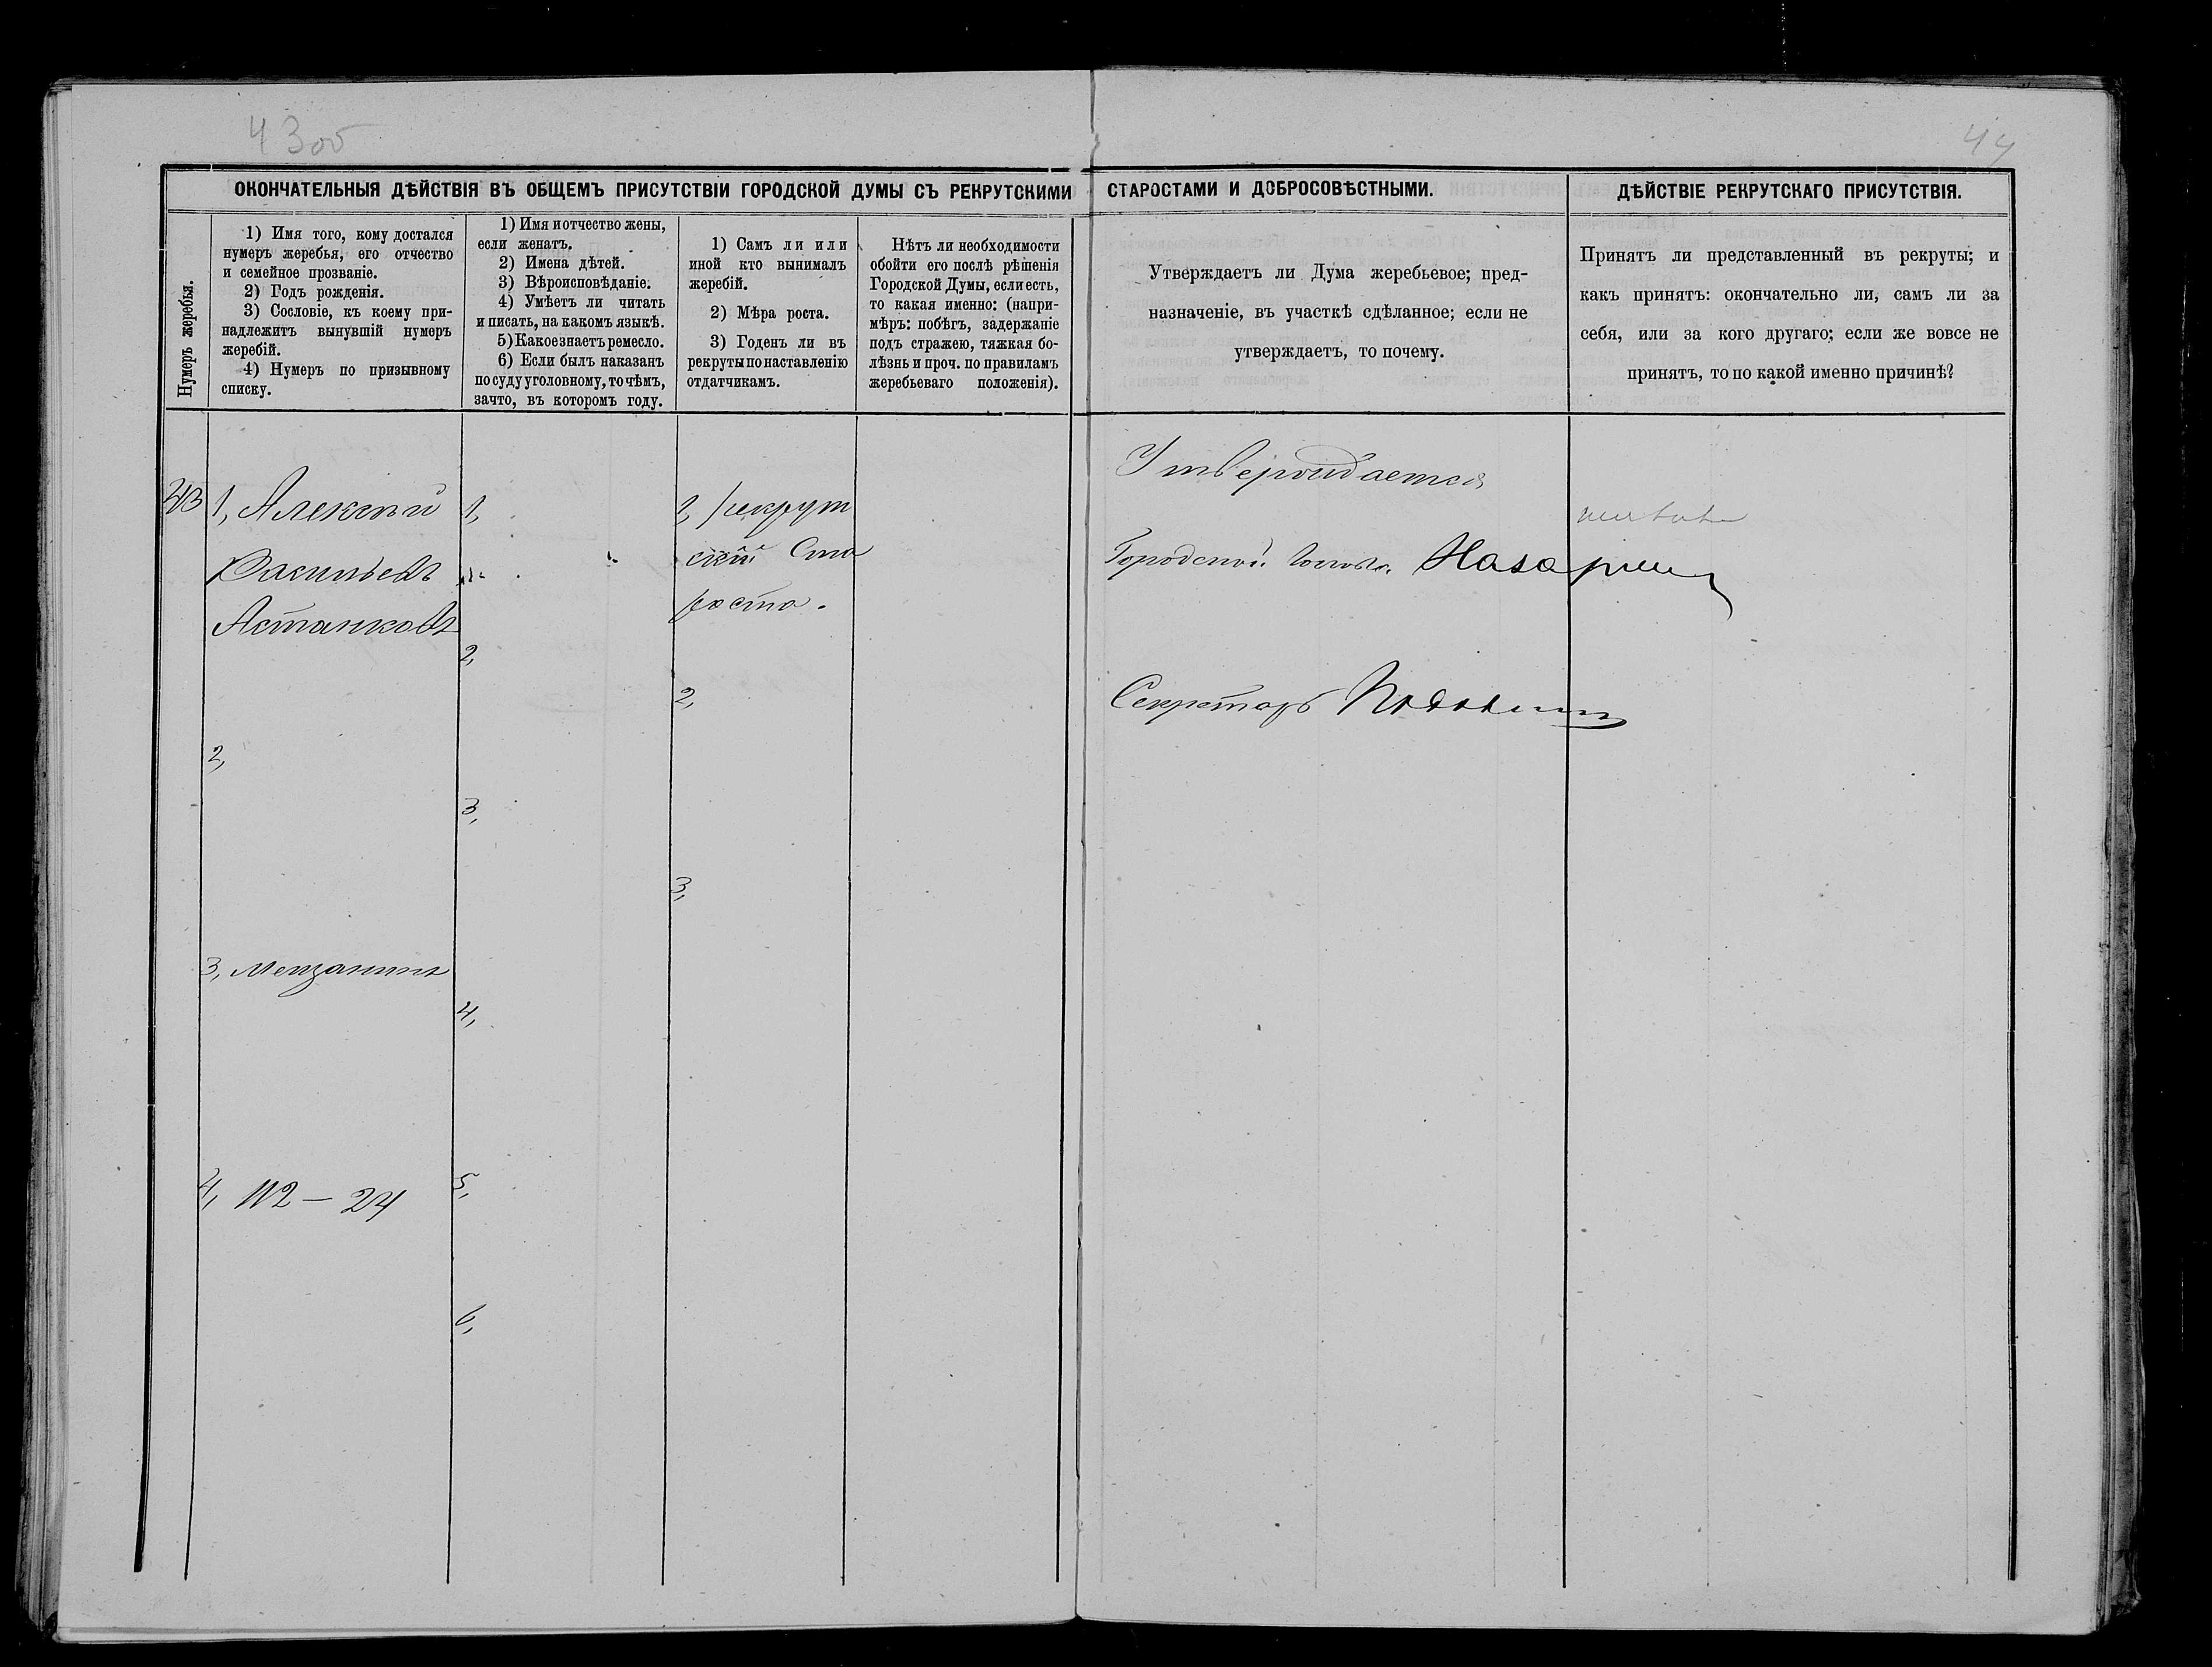 43об
44
ОКОНЧАТЕЛЬНЫЯ ДѢЙСТВІЯ ВЪ ОБЩЕМЪ ПРИСУТСТВІИ ГОРОДСКОЙ ДУМЫ СЪ РЕКРУТСКИМИ СТАРОСТАМИ И ДОБРОСОВѢСТНЫМИ.
ДѢЙСТВІЕ РЕКРУТСКАГО ПРИСУТСТВІЯ.
Нумеръ жеребья.
1) Имя того, кому достался
нумеръ жеребья, его отчество
и семейное прозваніе.
2) Годъ рожденія.
3) Сословіе, къ коему при-
надлежитъ вынувшій нумеръ
жеребій.
4) Нумеръ по призывному
списку.
1) Имя и отчество жены,
если женатъ.
2) Имена дѣтей.
3) Вѣроисповѣданіе.
4) Умѣетъ ли читать
и писать, на какомъ языкѣ.
5) Какое знаетъ ремесло.
6) Если былъ наказанъ
по суду уголовному, то чѣмъ,
за что, въ которомъ году.
1) Самъ ли или
иной кто вынималъ
жеребій.
2) Мѣра роста.
3) Годенъ ли въ
рекруты по наставленію
отдатчикамъ.
Нѣтъ ли необходимости
обойти его послѣ рѣшенія
Городской Думы, если есть,
то какая именно: (напри-
мѣръ: побѣгъ, задержаніе
подъ стражею, тяжкая бо-
лѣзнь и проч. по правиламъ
жеребьеваго положенія).
Утверждаетъ ли Дума жеребьевое; пред-
назначеніе, въ участкѣ сдѣланное; если не
утверждаетъ, то почему.
Принятъ ли представленный въ рекруты; и
какъ принятъ: окончательно ли, самъ ли за
себя, или за кого другаго; если же вовсе не
принятъ, то по какой именно причинѣ?
43
1, Алексѣй
Васильевъ
Астанковъ
2,
3, Мещанинъ
4, 112 — 24
1,
2,
3,
4,
5,
6,
1, рекрут
скій Ста
роста.
2,
3,
Утверждается
Городской Голова Назар
Секретарь